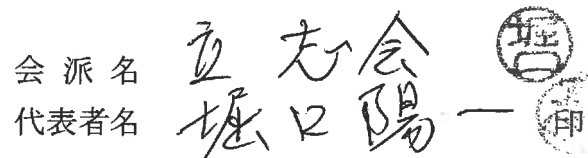 会派名 立志会
代表者名 堀口陽一 印
堀口